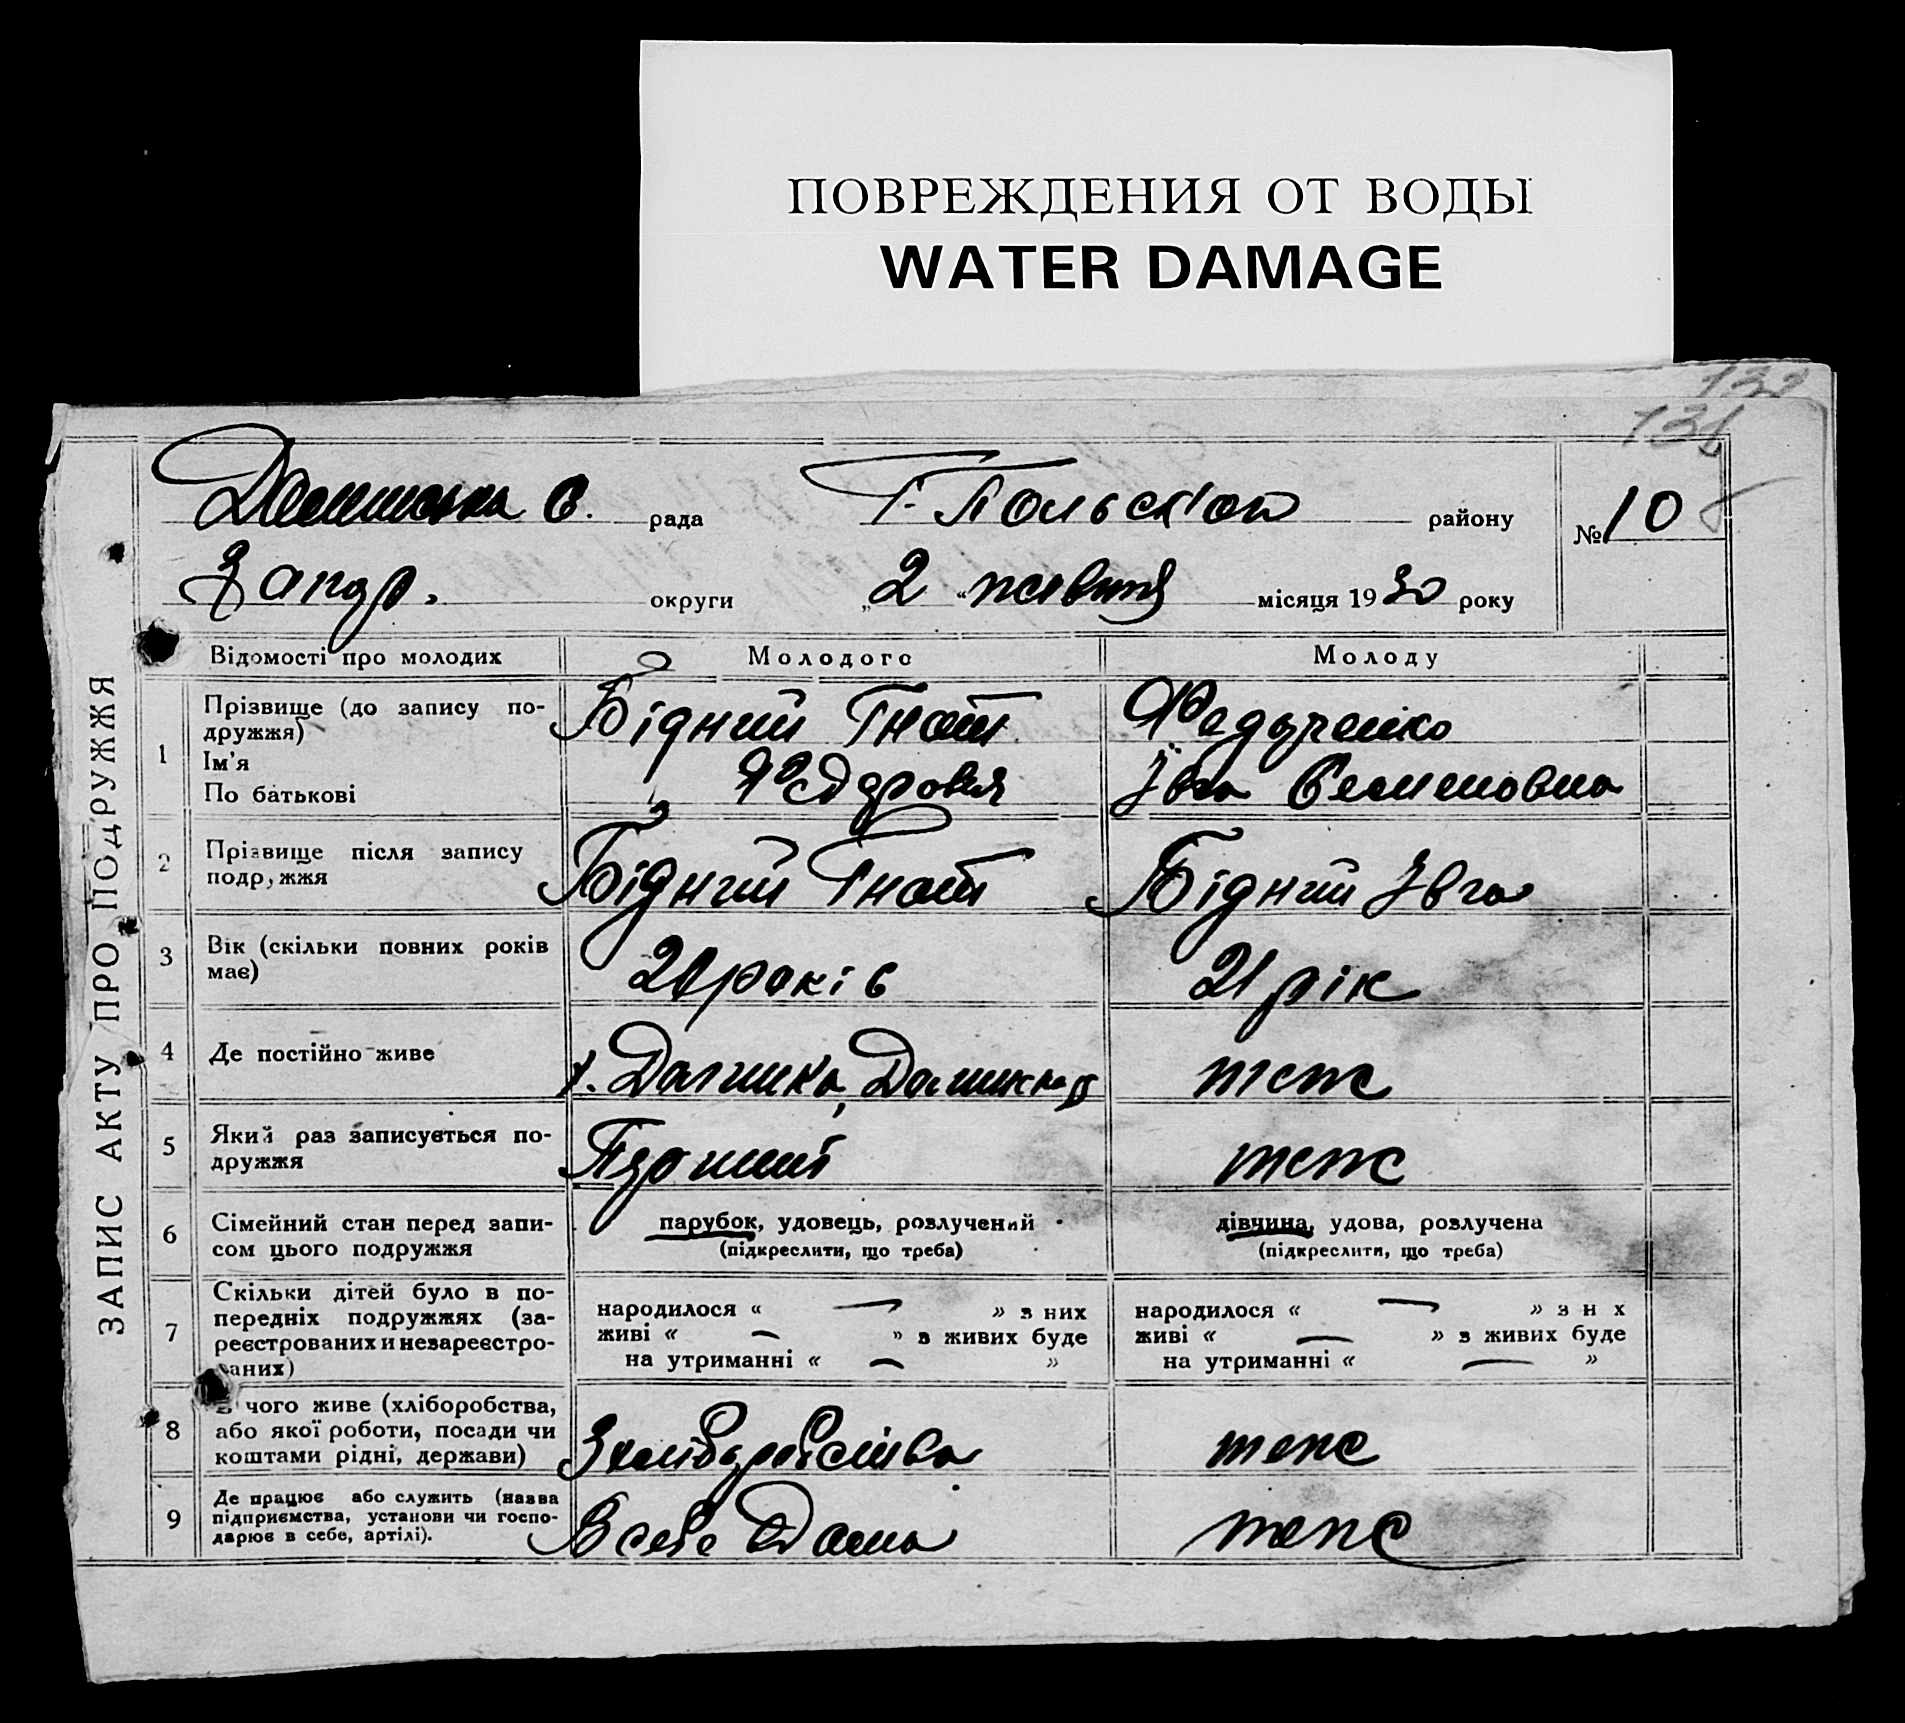 ПОВРЕЖДЕНИЯ ОТ ВОДЫ
WATER DAMAGE
132
131
с. рада Г-Польской району № 10
Запор. округи „2“ жовтня місяця 1930 року
ЗАПИС АКТУ ПРО ПОДРУЖЖЯ
Відомості про молодих Молодого Молоду
1 Прізвище (до запису по-
дружжя)
Ім'я
По батькові
Бідний Гнат
Федоровя
Федоренко
Івга Семеновна
2 Прізвище після запису
подружжя
Бідний Гнат
Бідний Івга
3 Вік (скільки повних років
має)
20 років
21 рік
4 Де постійно живе
х.
теж
5 Який раз записується по-
дружжя
Перший
теж
6 Сімейний стан перед запи-
сом цього подружжя
парубок, удовець, розлучений
(підкреслити, що треба)
дівчина, удова, розлучена
(підкреслити, що треба)
7 Скільки дітей було в по-
передніх подружжях (за-
реєстрованих и незареєстро-
ваних)
народилося « — » з них
живі « — » з живих буде
на утриманні « — »
народилося « — » з н х
живі « — » з живих буде
на утриманні « — »
8 З чого живе (хліборобства,
або якої роботи, посади чи
коштами рідні, держави)
З хліборобства
теж
9 Де працює або служить (назва
підприємства, установи чи госпо-
дарює в себе, артілі).
В себе дома
теж